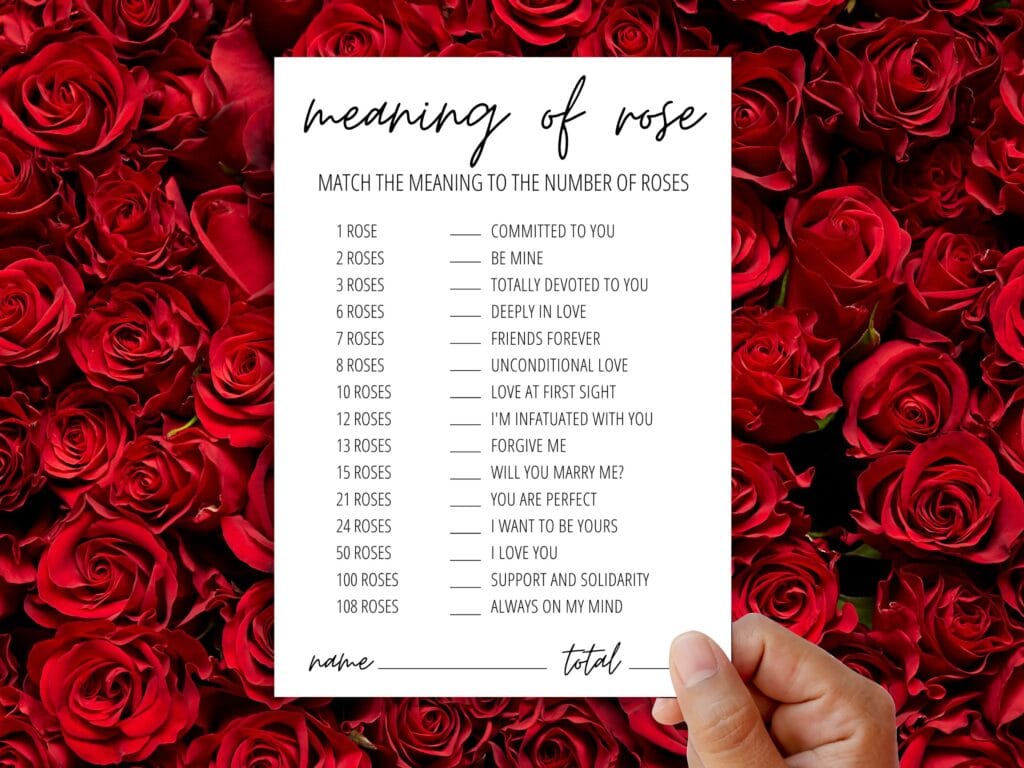 meaning of rose
MATCH THE MEANING TO THE NUMBER OF ROSES
1 ROSE ____ COMMITTED TO YOU
2 ROSES ____ BE MINE
3 ROSES ____ TOTALLY DEVOTED TO YOU
6 ROSES ____ DEEPLY IN LOVE
7 ROSES ____ FRIENDS FOREVER
8 ROSES ____ UNCONDITIONAL LOVE
10 ROSES ____ LOVE AT FIRST SIGHT
12 ROSES ____ I'M INFATUATED WITH YOU
13 ROSES ____ FORGIVE ME
15 ROSES ____ WILL YOU MARRY ME?
21 ROSES ____ YOU ARE PERFECT
24 ROSES ____ I WANT TO BE YOURS
50 ROSES ____ I LOVE YOU
100 ROSES ____ SUPPORT AND SOLIDARITY
108 ROSES ____ ALWAYS ON MY MIND
name ____ total ____